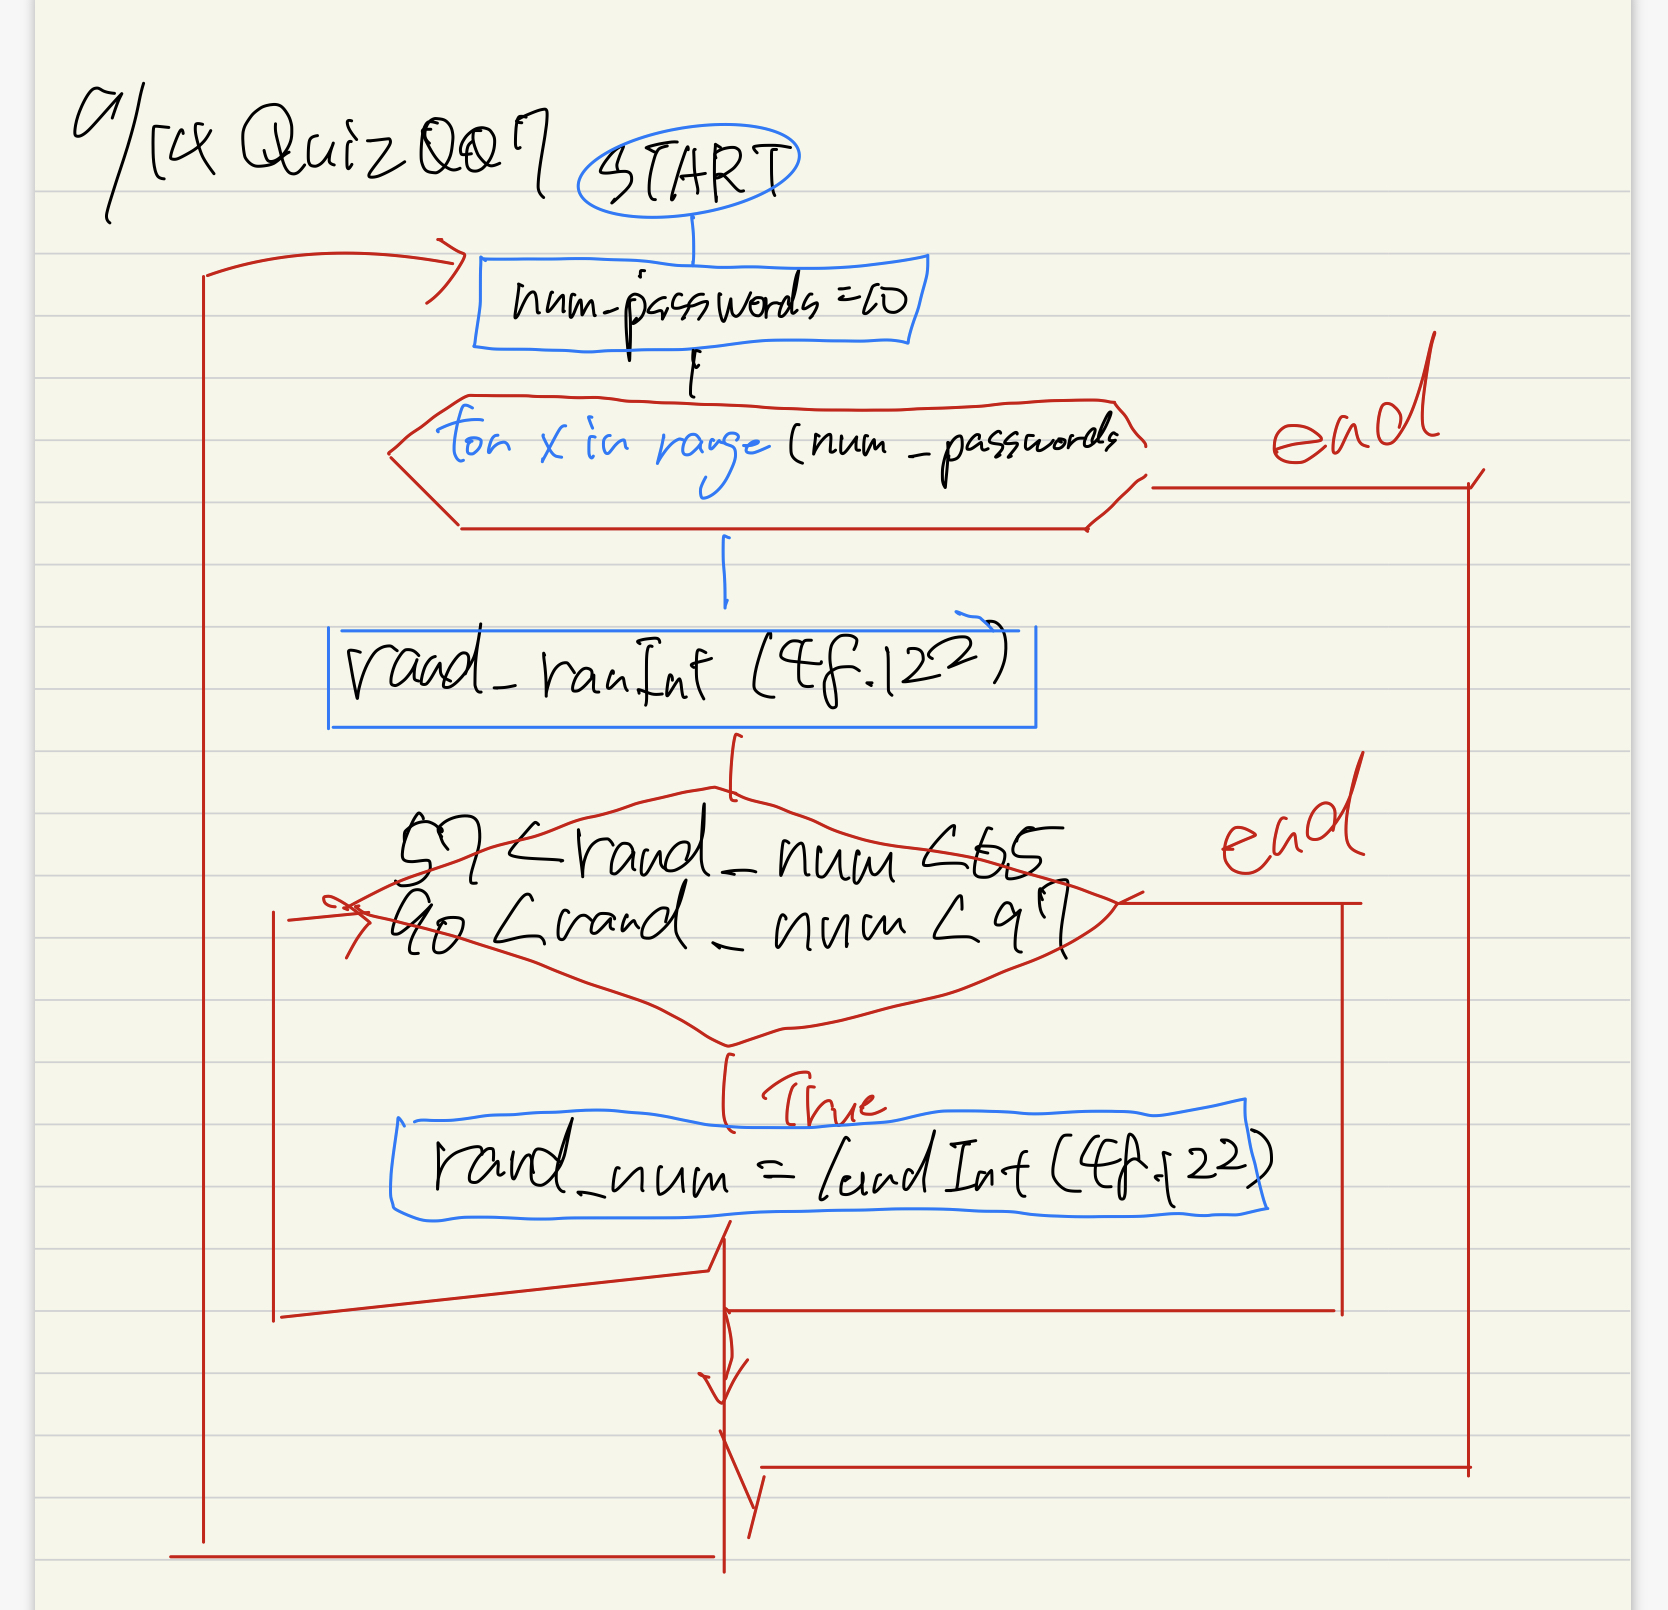 9/14 Quiz007
START
num_passwords =10
for x in range (num_passwords
end
rand_ranInt (48.122)
57 <rand_num <65
90 <rand_num <97
end
True
rand_num = randInt (48.122)